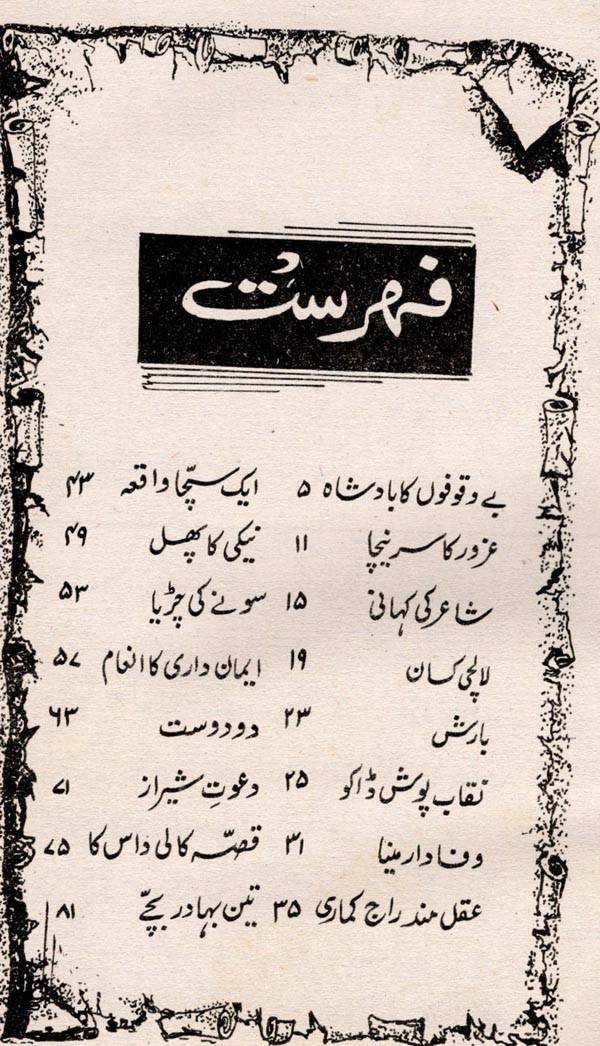 فہرست
بے وقوفوں کا بادشاہ ۵ ایک سچّا واقعہ ۴۳
غرور کا سر نیچا ۱۱ نیکی کا پھل ۴۹
شاعر کی کہانی ۱۵ سونے کی چڑیا ۵۳
لالچی کسان ۱۹ ایمان داری کا انعام ۵۷
بارش ۲۳ دو دوست ۶۳
نقاب پوش ڈاکو ۲۵ دعوتِ شیراز ۷۱
وفادار مینا ۳۱ قصّہ کالی داس کا ۷۵
عقل مند راج کماری ۳۵ تین بہادر بچّے ۸۱